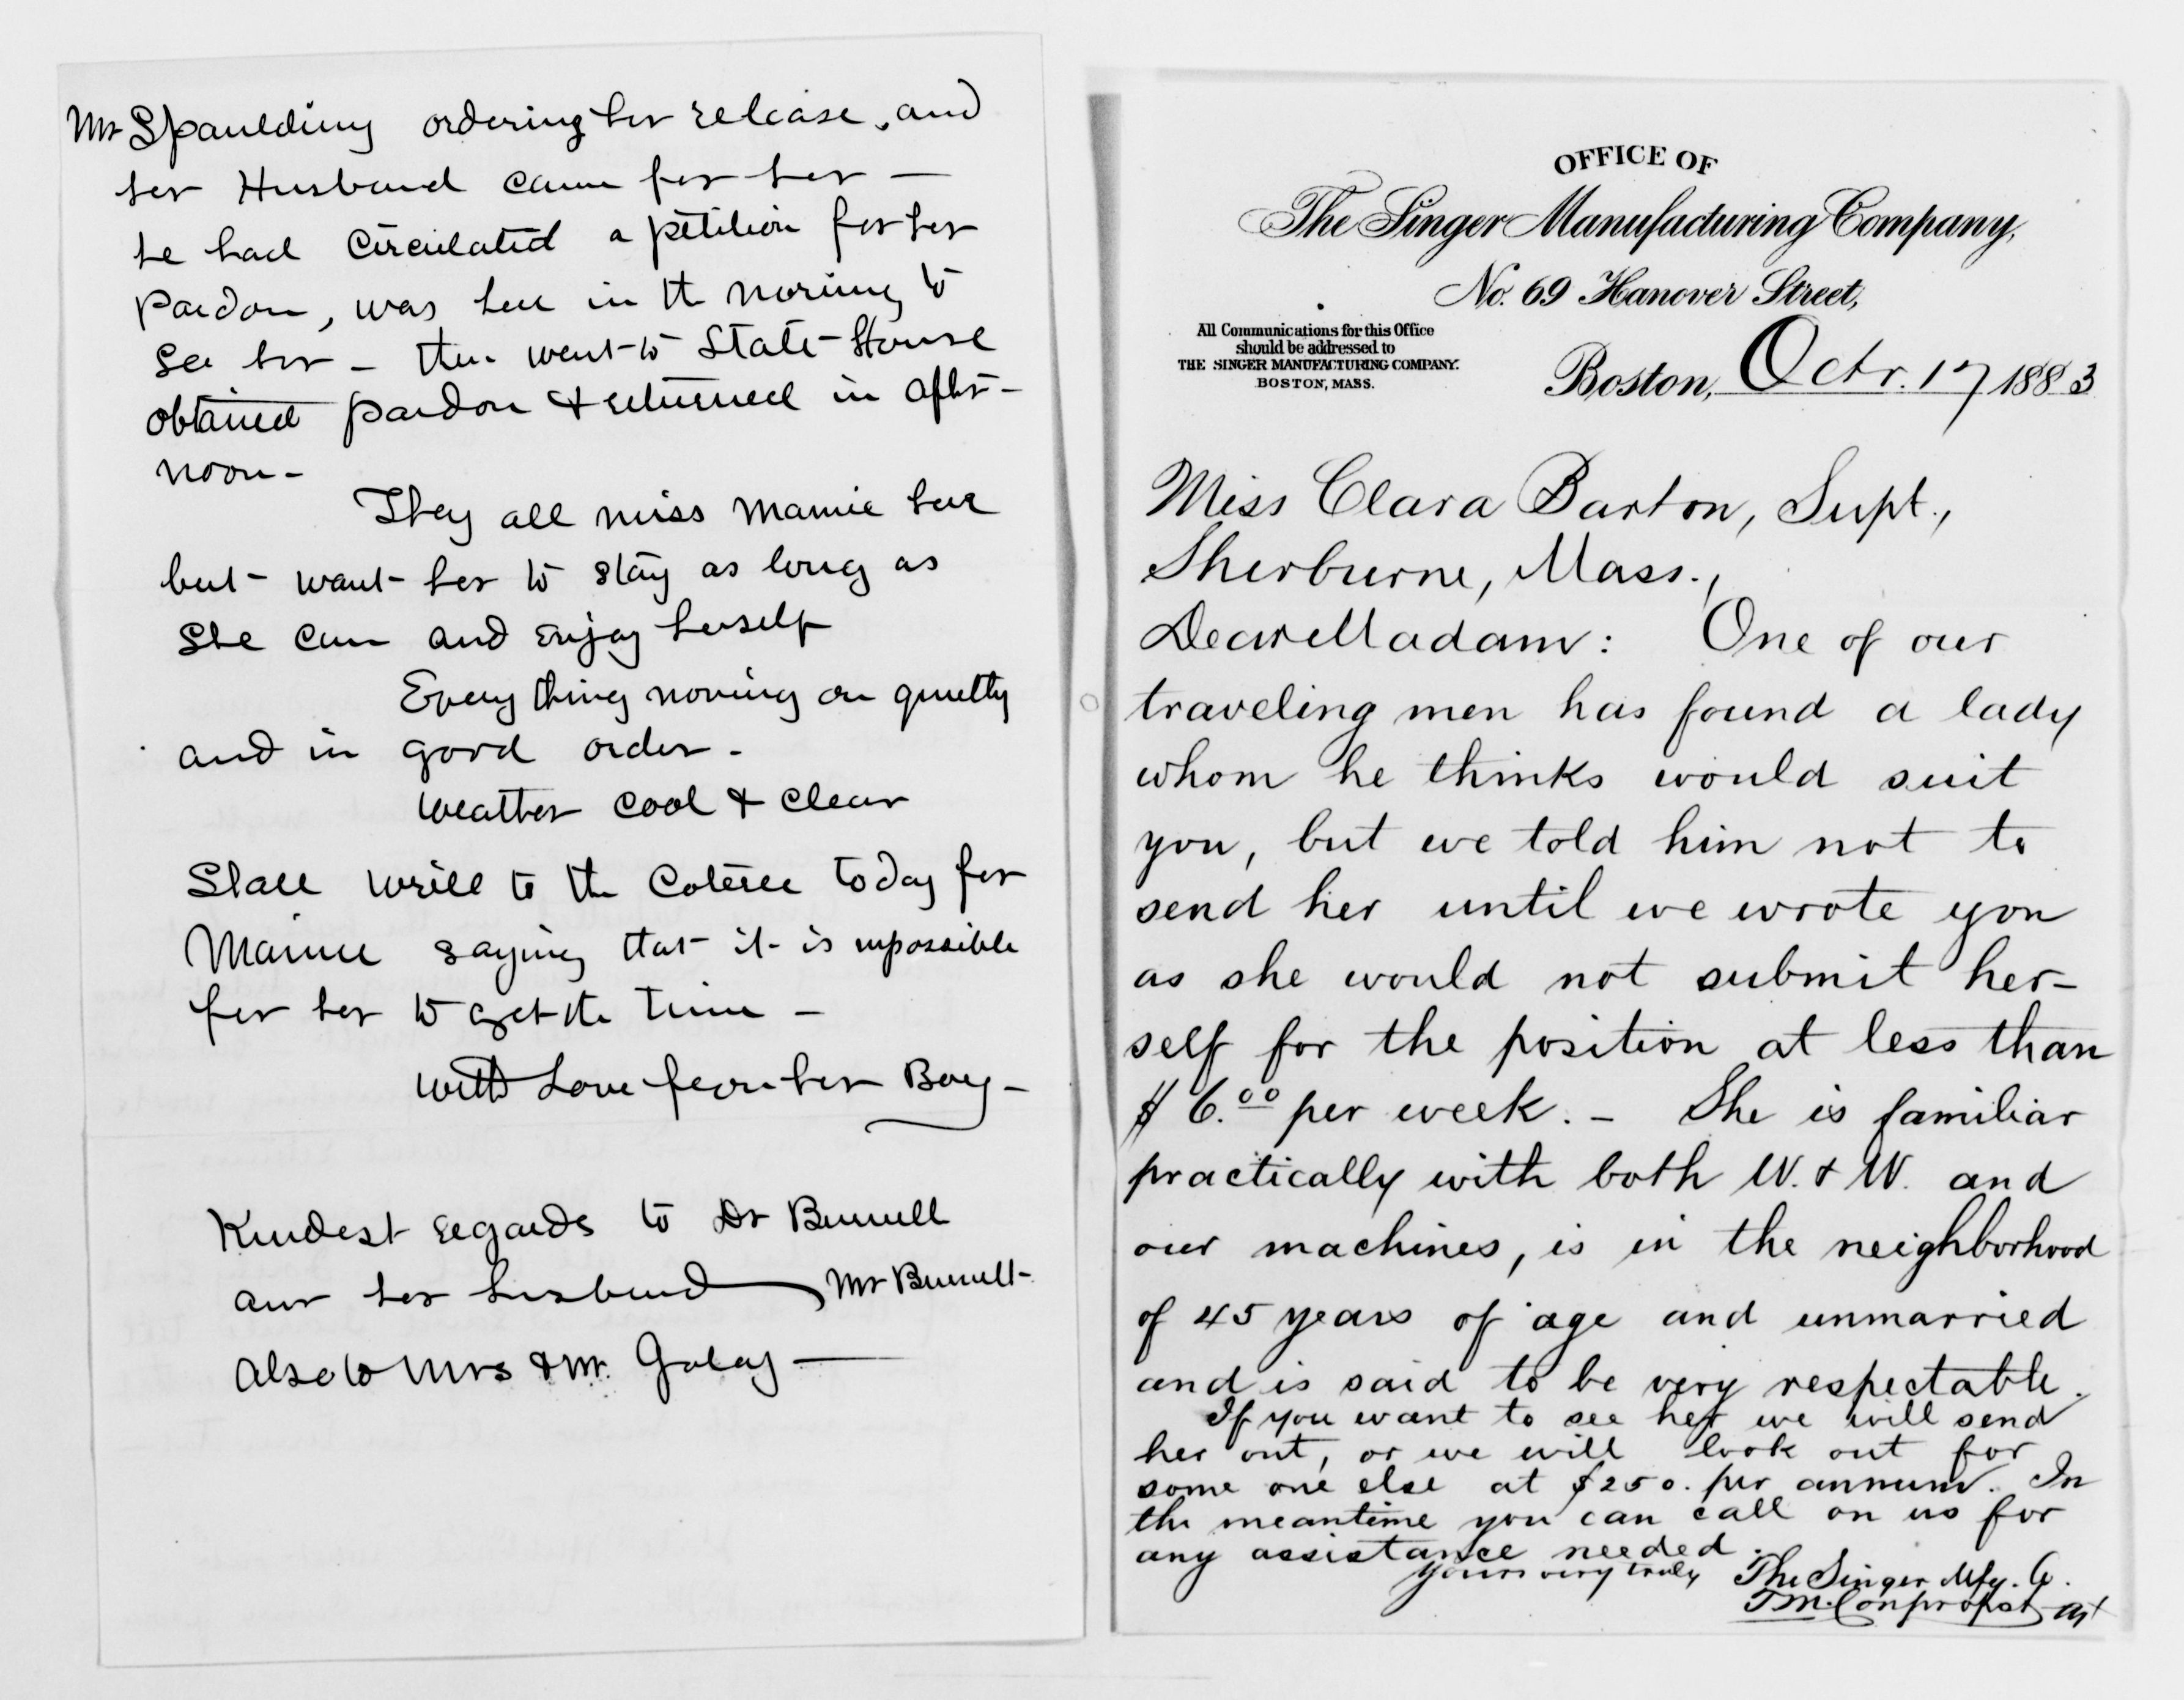 Mr Spaulding ordering her release, and
her Husband came for her —
he had Circulated a petition for her
Pardon, was here in the morning to
see her – then went to State House
obtained pardon & returned in after-
noon –
They all miss Mamie here
but want her to stay as long as
She can and enjoy herself
Every thing moving on quietly
and in good order –
Weather Cool & Clear
Shall write to the Coterie today for
Mamie saying that it is impossible
for her to get the time –
With Love from her Boy –
Kindest regards to Dr Burnell
and her husband — Mr Burnell –
Also to Mrs & Mr.
OFFICE OF
The Singer Manufacturing Company,
No. 69 Hanover Street,
All Communications for this Office
should be addressed to
THE SINGER MANUFACTURING COMPANY.
BOSTON, MASS.
Boston, Octr. 17 1883
Miss Clara Barton, Supt.,
Sherburne, Mass.,
Dear Madam: One of our
traveling men has found a lady
whom he thinks would suit
you, but we told him not to
send her until we wrote you
as she would not submit her-
self for the position at less than
$6.00 per week. – She is familiar
practically with both W. & W. and
our machines, is in the neighborhood
of 45 years of age and unmarried
and is said to be very respectable.
If you want to see her we will send
her out, or we will look out for
some one else at $250. per annum. In
the meantime you can call on us for
any assistance needed.
Yours very truly The Singer Mfg. Co.
Agt